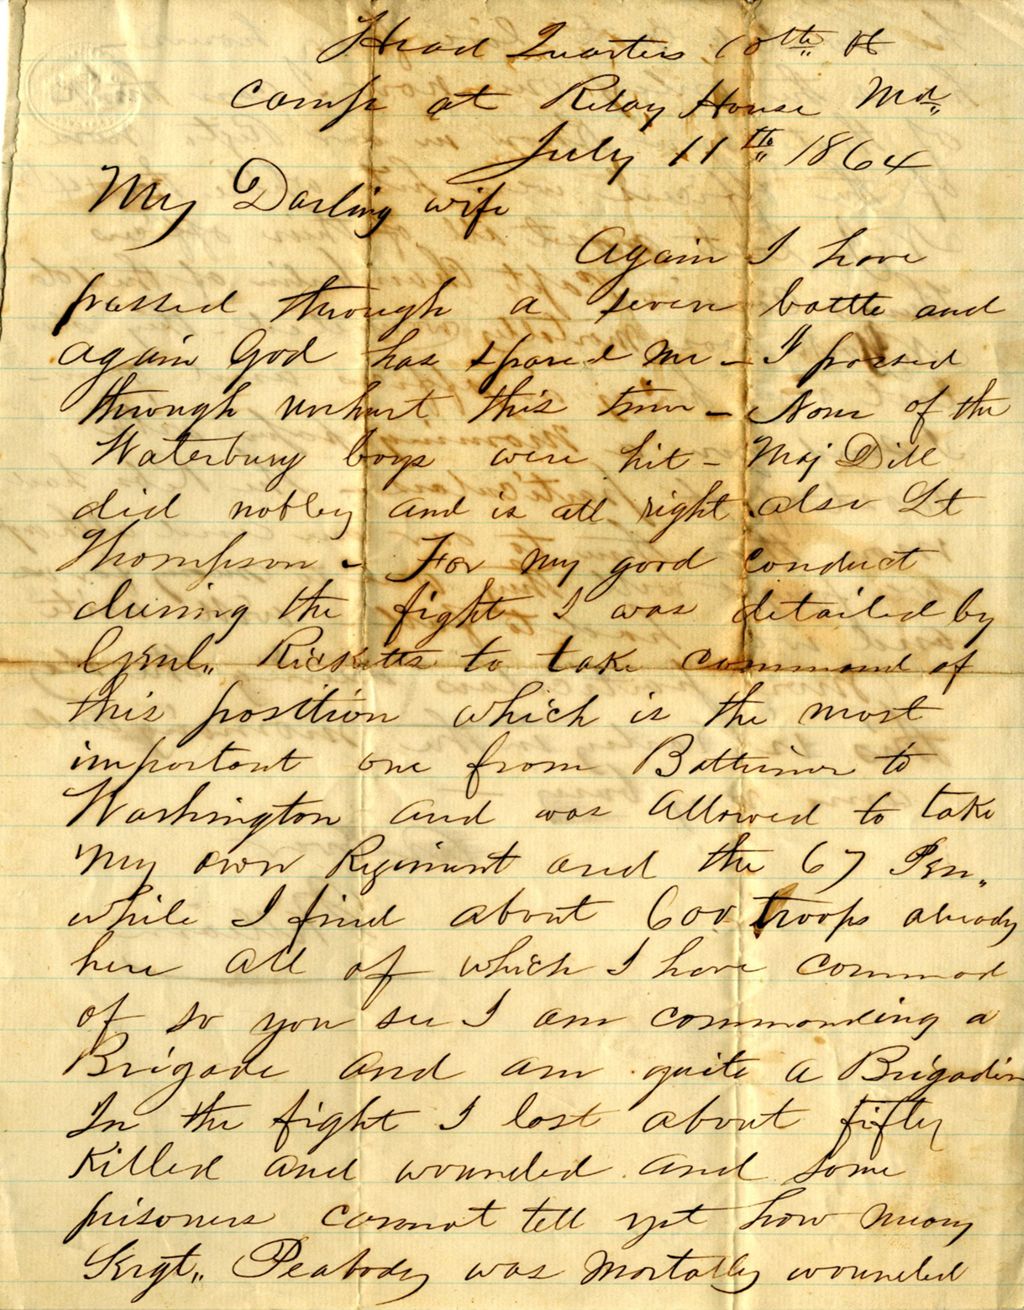 Head Quarters 10th Vt
Camp at Relay House Md
July 11th 1864
My Darling wife
Again I have
passed through a severe battle and
again God has spared me – I passed
through unhurt this time – None of the
Waterbury boys were hit – Maj Dill
did nobley and is all right also Lt
Thompson – For my good conduct
during the fight I was detailed by
Genl. Ricketts to take command of
this position which is the most
important one from Baltimore to
Washington and was allowed to take
my own Regiment and the 67 Pen.
while I find about 600 troops already
here all of which I have command
of so you see I am commanding a
Brigade and am quite a Brigadier
In the fight I lost about fifty
Killed and wounded and some
prisoners cannot tell yet how many
Sergt. Peabody was mortally wounded